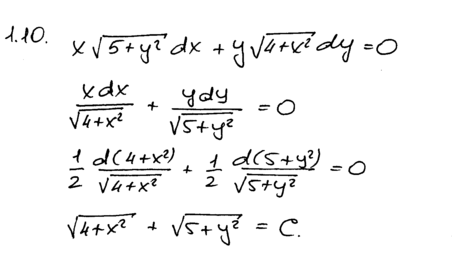 1.10. x√(5+y²) dx + y√(4+x²) dy = 0
xdx/√(4+x²) + ydy/√(5+y²) = 0
1/2 d(4+x²)/√(4+x²) + 1/2 d(5+y²)/√(5+y²) = 0
√(4+x²) + √(5+y²) = C.